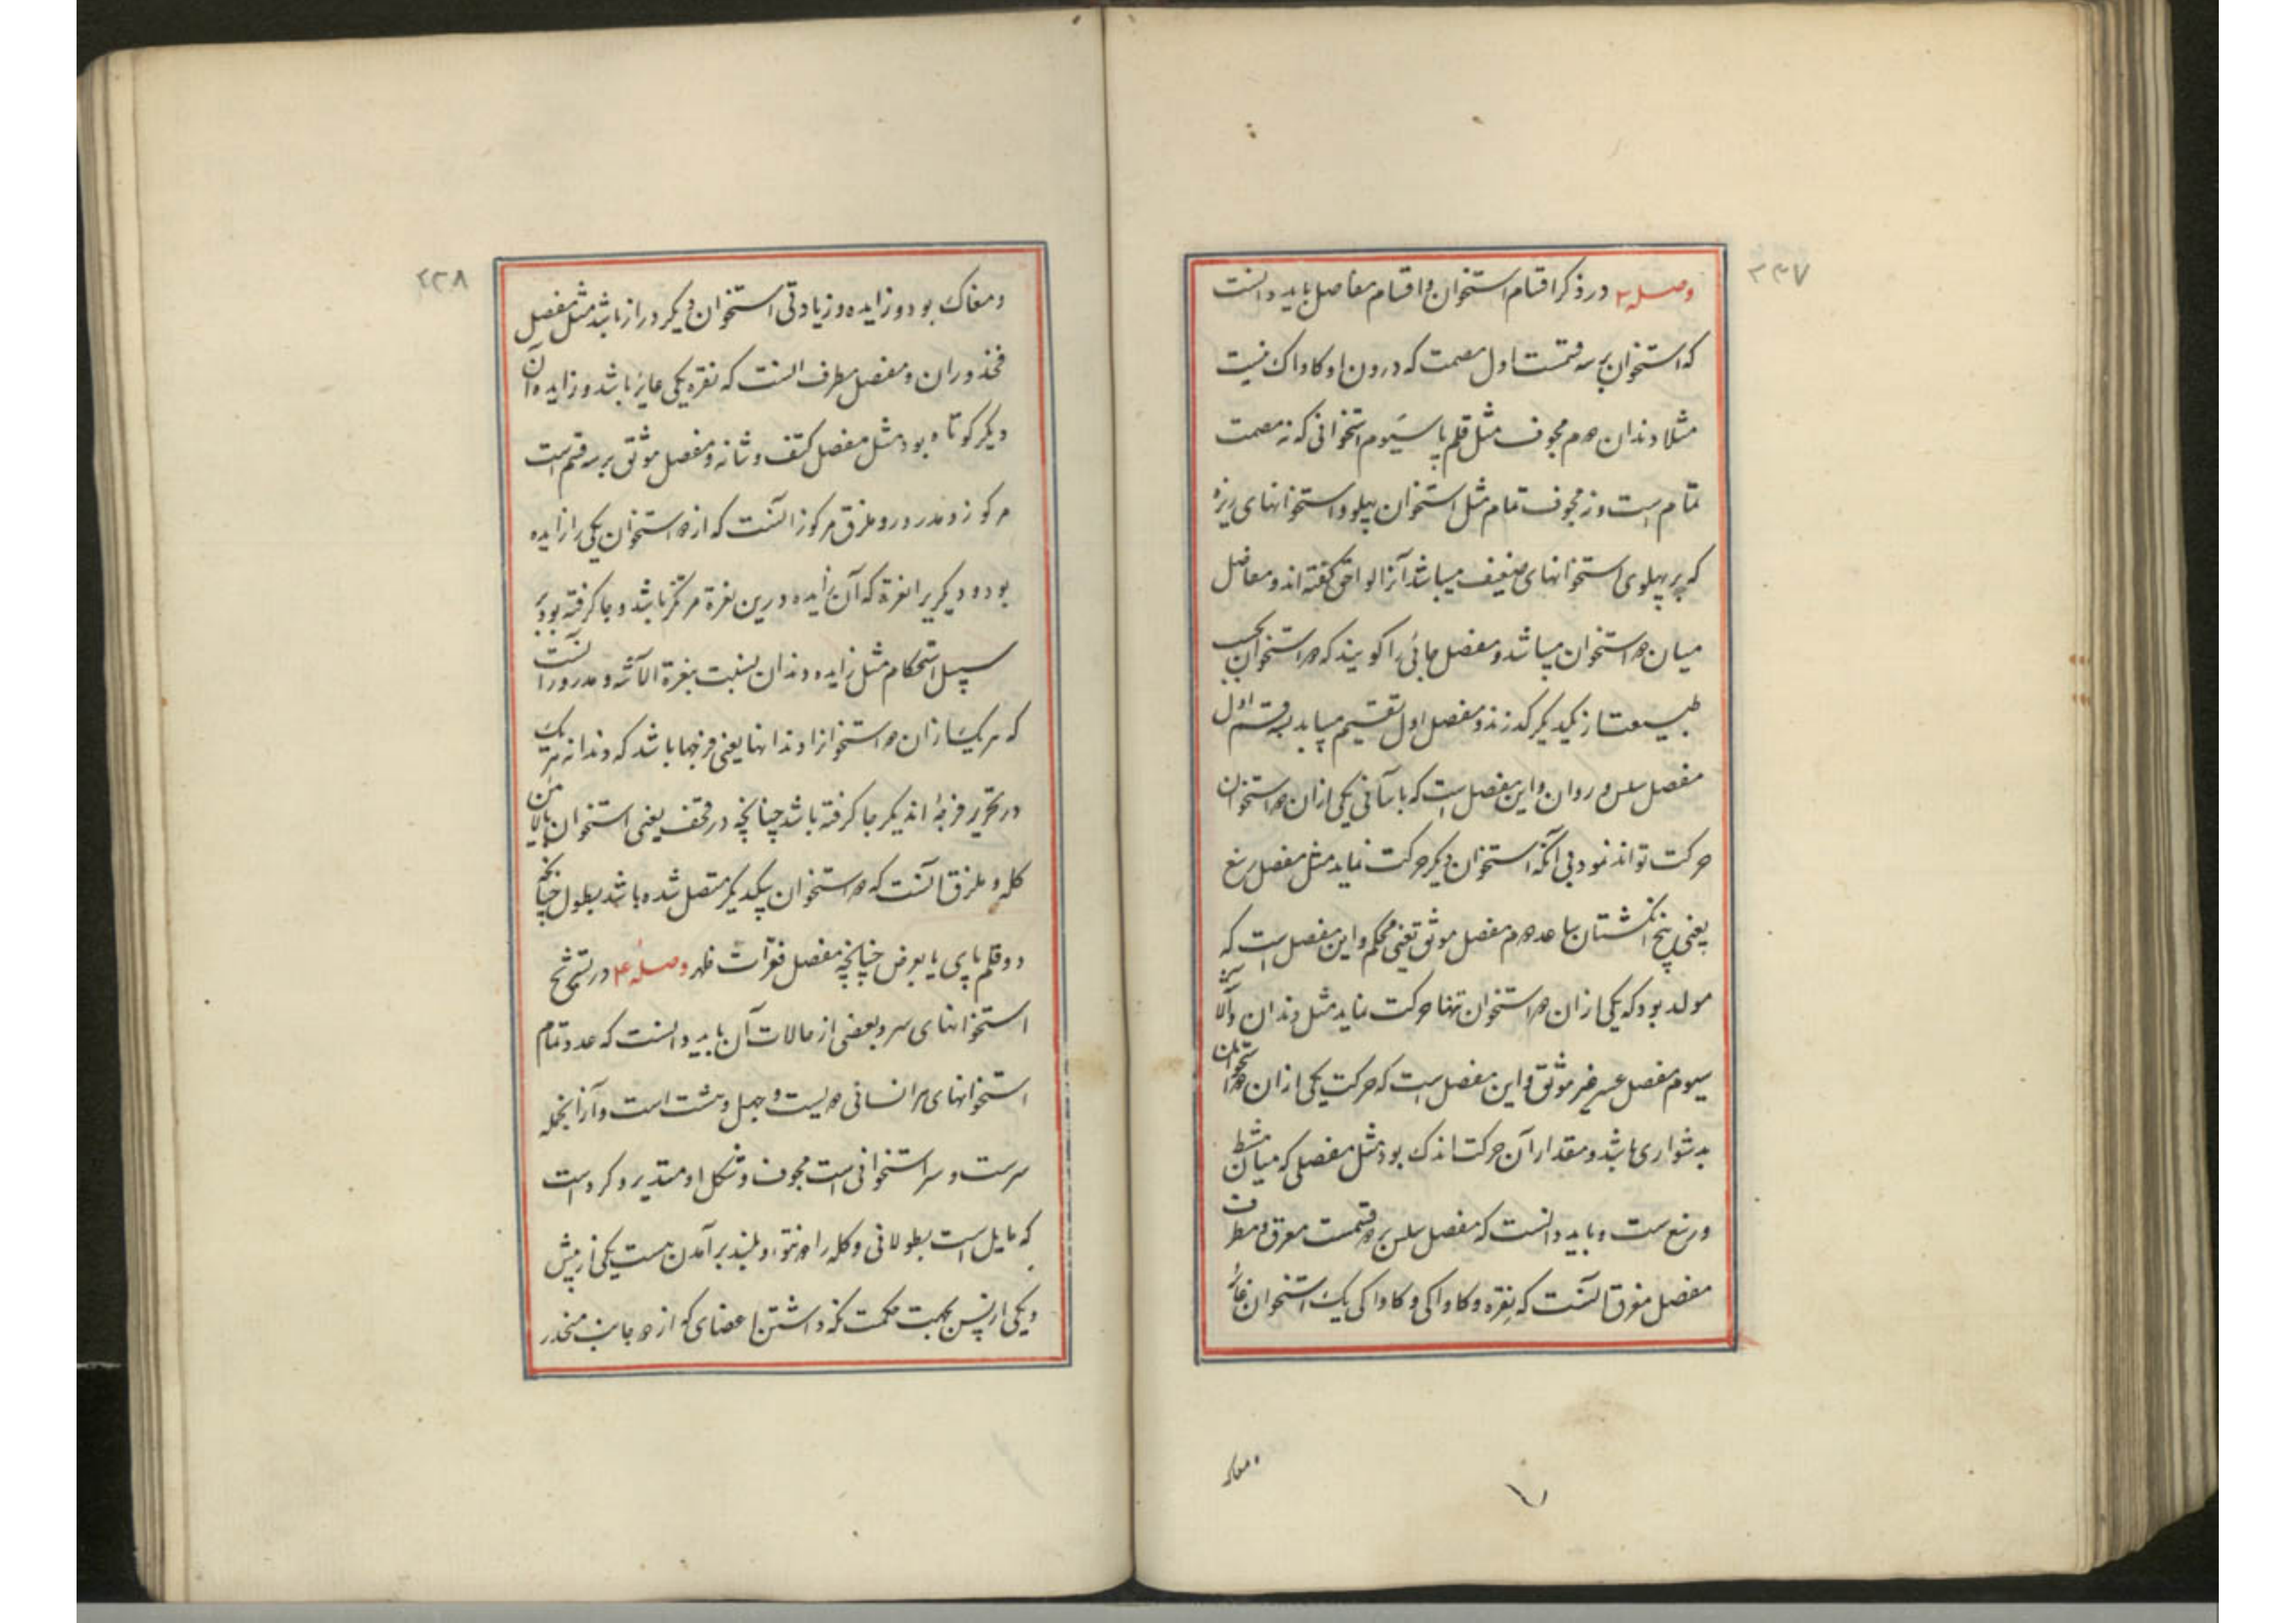 ۲۳۷
وصل ۳ در ذکر اقسام استخوان و اقسام مفاصل باید دانست
که استخوان بر سه قسمست اول مصمت که درون او کاواک نیست
مثلا دندان دوم مجوف مثل قلم پا سیوم استخوانی که نه مصمت
تمام است و نه مجوف تمام مثل استخوان پهلو و استخوانهای ریزه
که بر پهلوی استخوانهای ضعیف میباشد آنرا لواحق گفته اند و مفاصل
میان دو استخوان میباشد و مفصل جائی را گویند که دو استخوان بحسب
طبیعت از یکدیگر گذرند و مفصل اول تقسیم مییابد بسه قسم اول
مفصل سلس و روان و این مفصل است که باسانی یکی ازان دو استخوان
حرکت تواند نمود بی آنکه استخوان دیگر حرکت نماید مثل مفصل رسغ
یعنی پنج انگشتان با ساعد دوم مفصل موثق یعنی محکم و این مفصل است که
مولد بود که یکی ازان دو استخوان تنها حرکت نماید مثل دندان و
سیوم مفصل عسر غیر موثق و این مفصل است که حرکت یکی ازان دو استخوان
بدشواری باشد و مقدار آن حرکت اندک بود مثل مفصلی که میان مشط
و رسغ ست و باید دانست که مفصل سلس بر دو قسمت مغرق و مطرف
مفصل مغرق آنست که نقره و کاواکی و کاواکی یک استخوان غائر
و مغاک
۲۳۸
و مغاک بود و زایده و زیادتی استخوان دیگر دراز باشد مثل مفصل
فخذ و ران و مفصل مطرف آنست که نقره یکی غایر باشد و زایده آن
دیگر کوتاه بود مثل مفصل کتف و شانه و مفصل موثق بر سه قسم است
مرکوز و مدرور و ملزق مرکوز آنست که از دو استخوان یکی را زایده
بود و دیگریرا نقره که آن زایده درین نقرة مرتکز باشد و جا گرفته بود بر
سبیل استحکام مثل زایده دندان بنسبت بنقرة الاثه و مدرور آنست
که هر یک ازان دو استخوانرا دندانها یعنی فرجها باشد که دندانه هر یک
در فرجهٔ دیگر جا گرفته باشد چنانچه در قحف یعنی استخوان بالای
کله و ملزق آنست که دو استخوان بیکدیگر متصل شده باشد بطول چنانچه
دو قلم پای یا بعرض چنانچه مفصل فقرات ظهر وصل ۴ در تشریح
استخوانهای سر و بعضی از حالات آن باید دانست که عدد تمام
استخوانهای هر انسانی دویست و چهل و هشت است و از آنجمله
سرست و سر استخوانی است مجوف و شکل او مستدیر و گرد است
که مایل است بطولانی و کله را دو نتوء و بلند برآمدن هست یکی از پیش
و یکی از پس بجهت حکمت نگه داشتن اعضای که از دو جانب منحدر